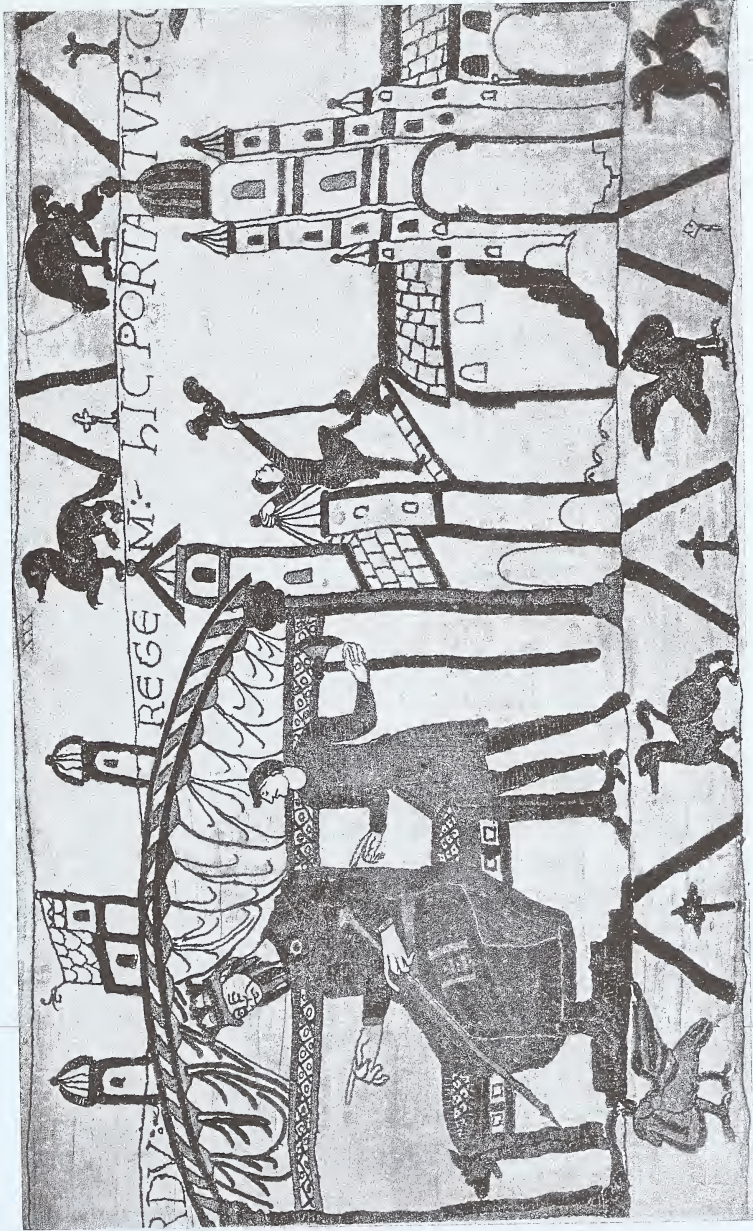 RDV: REGE M:- hIC PORTA TVR: CO